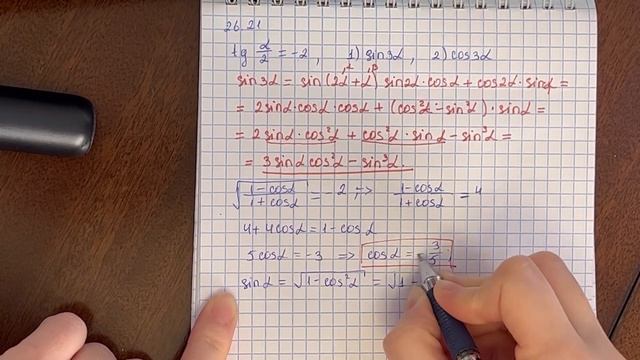 26.21
tg α/2 = -2, 1) sin3α, 2) cos3α
sin3α = sin(2α+α) sin2α·cosα + cos2α·sinα =
= 2sinα·cosα·cosα + (cos²α - sin²α)·sinα =
= 2sinα·cos²α + cos²α·sinα - sin³α =
= 3sinαcos²α - sin³α.
√(1-cosα)/(1+cosα) = -2 ; => (1-cosα)/(1+cosα) = 4
4+4cosα = 1-cosα
5cosα = -3 => cosα = -3/5;
sinα = √1-cos²α = √1-